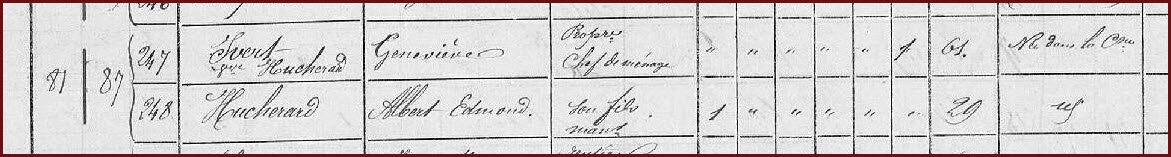 247 Ivert Geneviève Propre " " " " " 1 61. Née dans la Cne
vve Hucherard Chef de ménage
81 87
248 Hucherard Albert Edmond. son fils. 1 " " " " " 29 id